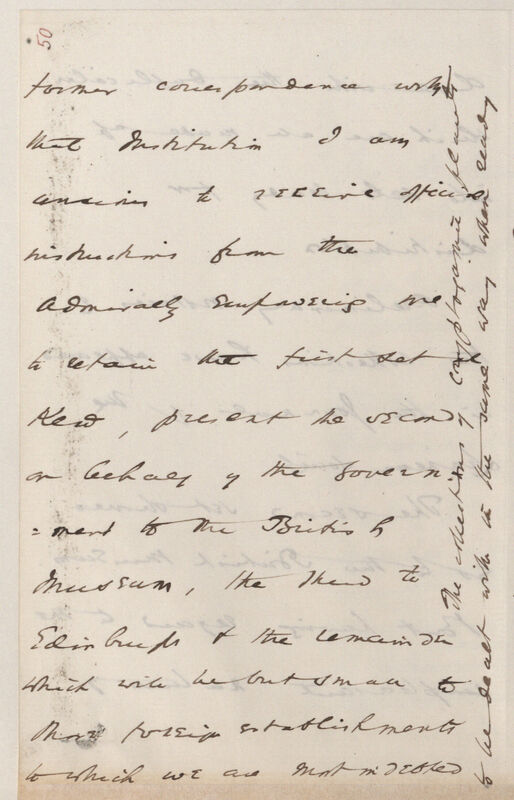 50
former correspondence with
that Institution I am
anxious to receive official
instructions from the
Admiralty empowering me
to retain the first set at
Kew, present the second
on behalf of the Govern-
=ment to the British
Museum, the third to
Edinburgh & the remainder
which will be but small to
those foreign establishments
to which we are most indebted
The collections of cryptogamic plants
to be dealt with in the same way when ready